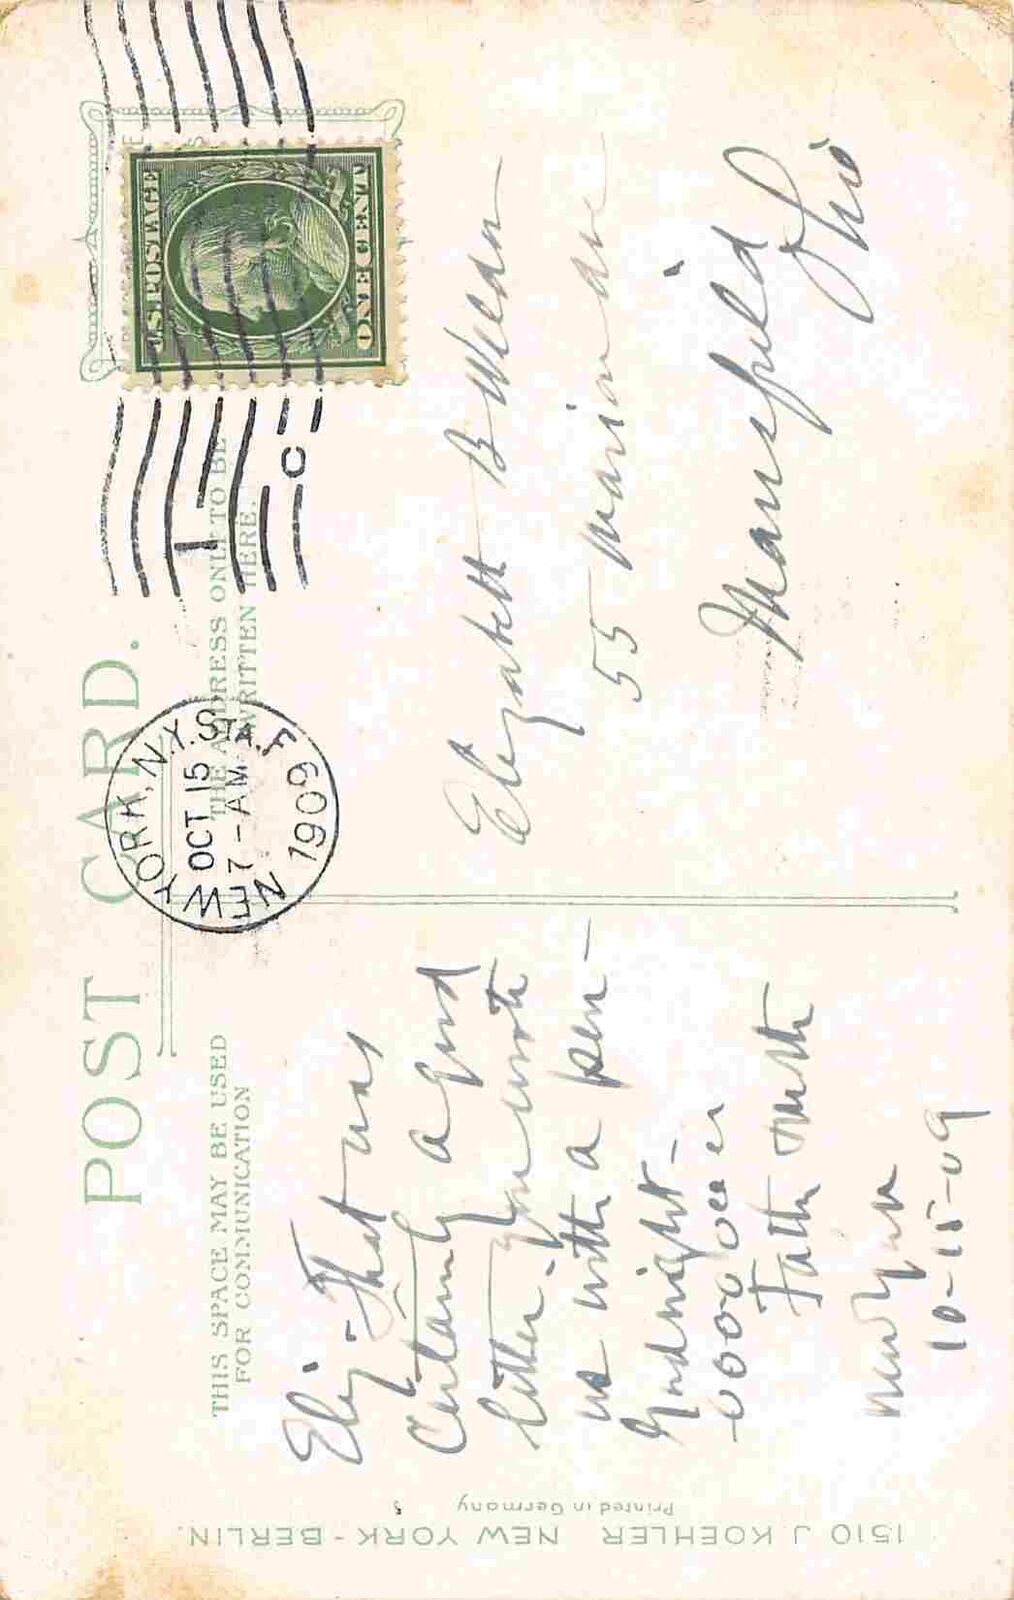 POST CARD.
THIS SPACE MAY BE USED
FOR COMMUNICATION
THE ADDRESS ONLY TO BE
WRITTEN HERE.
NEW YORK, N.Y. STA. F
OCT 15
7 - AM
1909
1
C
U.S. POSTAGE
ONE CENT
Eliz. - That was
Certainly a good
letter - You wrote
us with a pen -
Goodnight -
Father
New York
10-15-09
Elizabeth B
55 Marion ave
Mansfield
Ohio
1510 J KOEHLER NEW YORK - BERLIN.
Printed in Germany